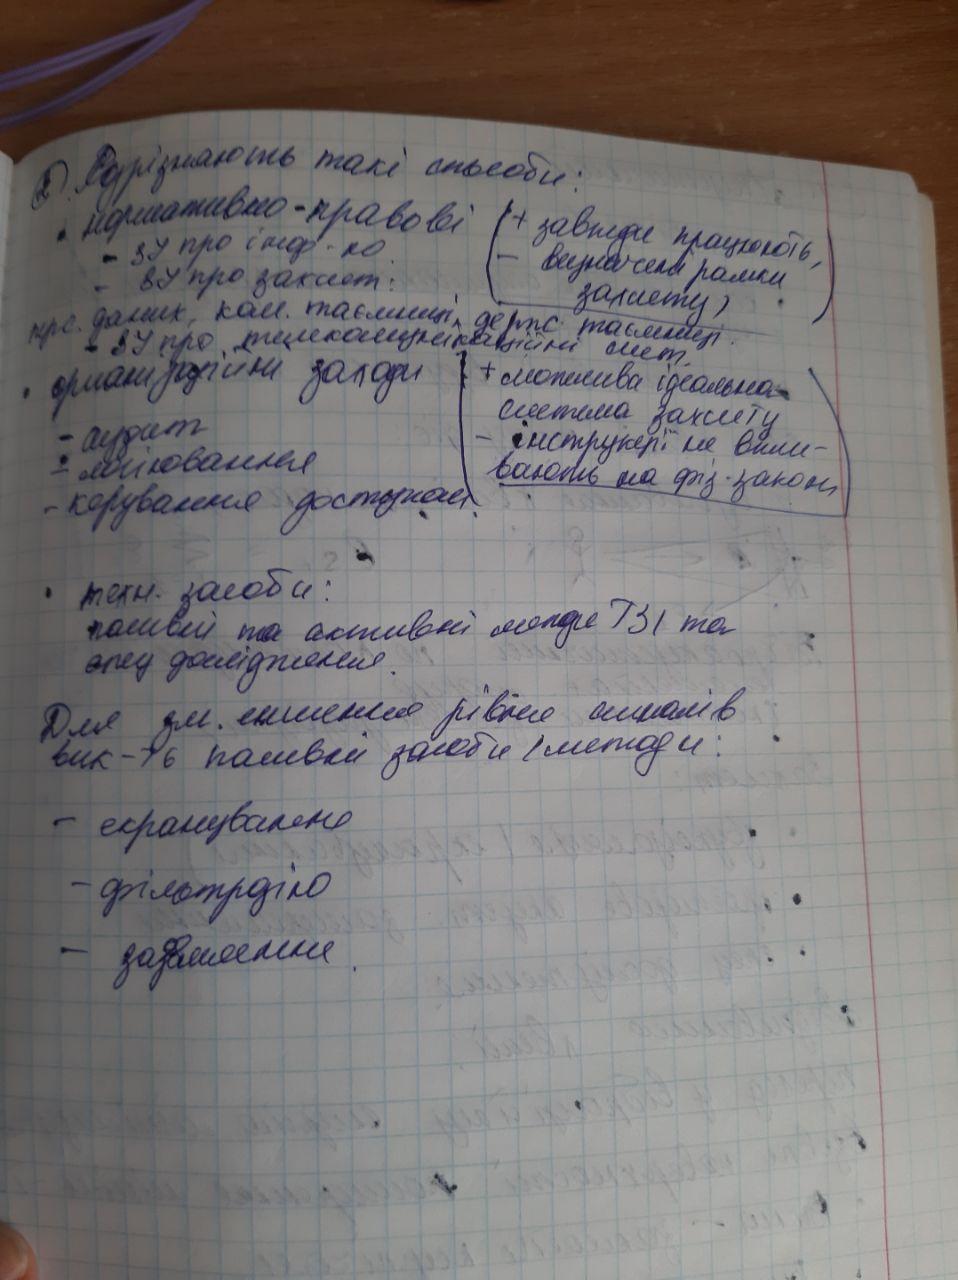 2). Розрізняють такі способи:
• нормативно-правові
- ЗУ про інф-ю
- ЗУ про захист:
прс. даних, ком. таємниці, держ. таємниці.
- ЗУ про телекомунікаційні сист.
(+ завжди працюють,
- визначені рамки
захисту)
• організаційні заходи
- аудит
- логіювання
- керування доступом
(+ можлива ідеальна
система захисту
- інструкції не впли-
вають на фіз. закони)
• техн. засоби:
пасивні та активні методи ТЗІ та
спец дослідження.
Для зменшення рівня сигналів
вик-ть пасивні засоби / методи:
- екранування
- фільтрацію
- заземлення.